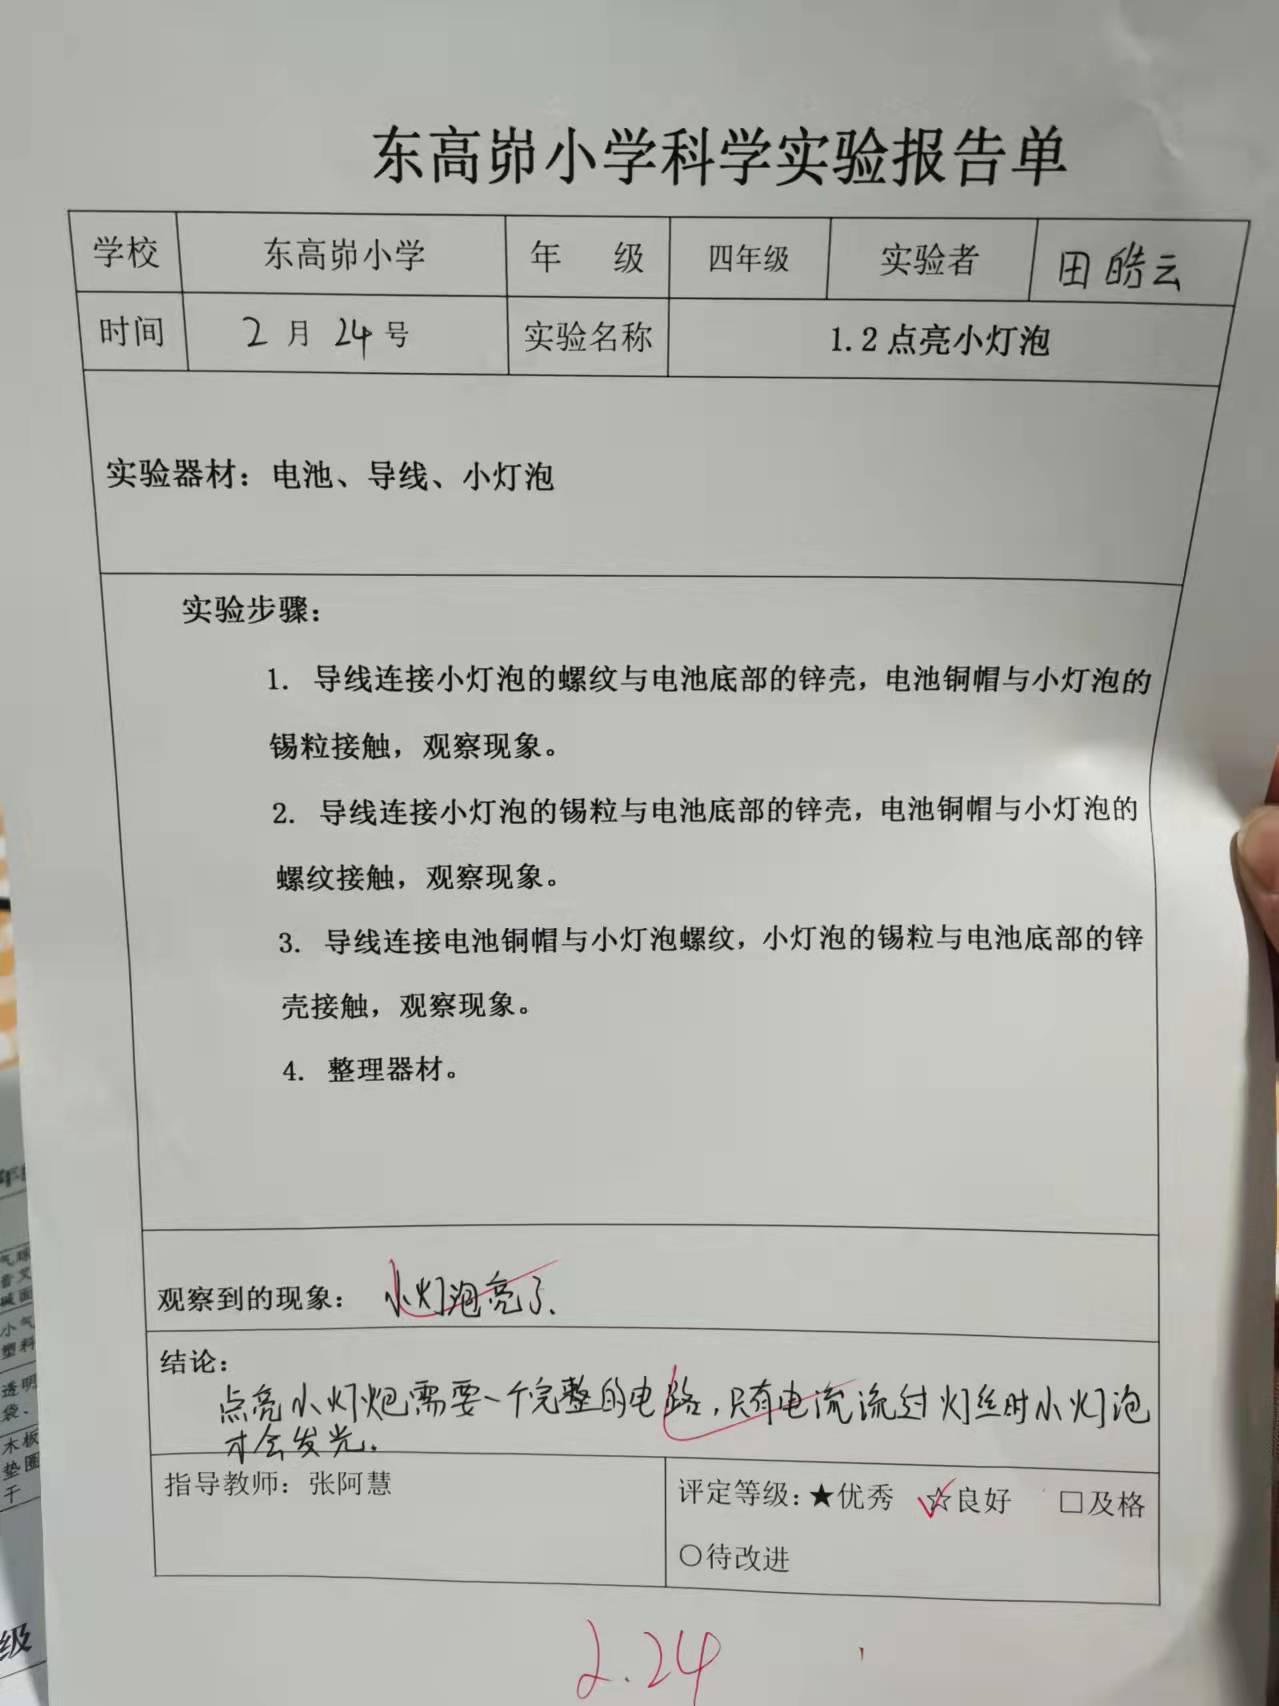 东高峁小学科学实验报告单
学校 东高峁小学 年 级 四年级 实验者 田皓云
时间 2月24号 实验名称 1.2点亮小灯泡
实验器材：电池、导线、小灯泡
实验步骤：
1. 导线连接小灯泡的螺纹与电池底部的锌壳，电池铜帽与小灯泡的
锡粒接触，观察现象。
2. 导线连接小灯泡的锡粒与电池底部的锌壳，电池铜帽与小灯泡的
螺纹接触，观察现象。
3. 导线连接电池铜帽与小灯泡螺纹，小灯泡的锡粒与电池底部的锌
壳接触，观察现象。
4. 整理器材。
观察到的现象： 小灯泡亮了、
结论：
点亮小灯炮需要一个完整的电路，只有电流流过灯丝时小灯泡
才会发光.
指导教师：张阿慧
评定等级：★优秀 ☆良好 □及格
○待改进
2.24
气球
小气
塑料
透明
袋、
木板
垫圈
干
级